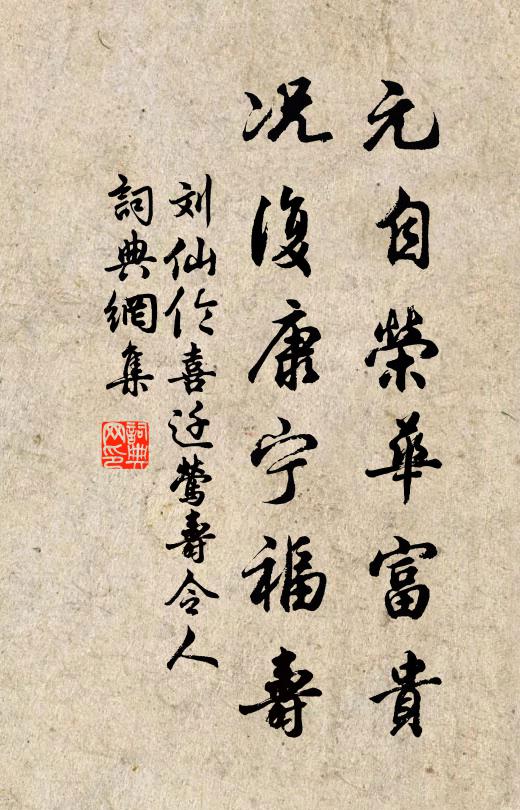 元自榮華富貴
况復康宁福壽
刘仙伦喜迁莺壽令人
詞典網集
詞典网印